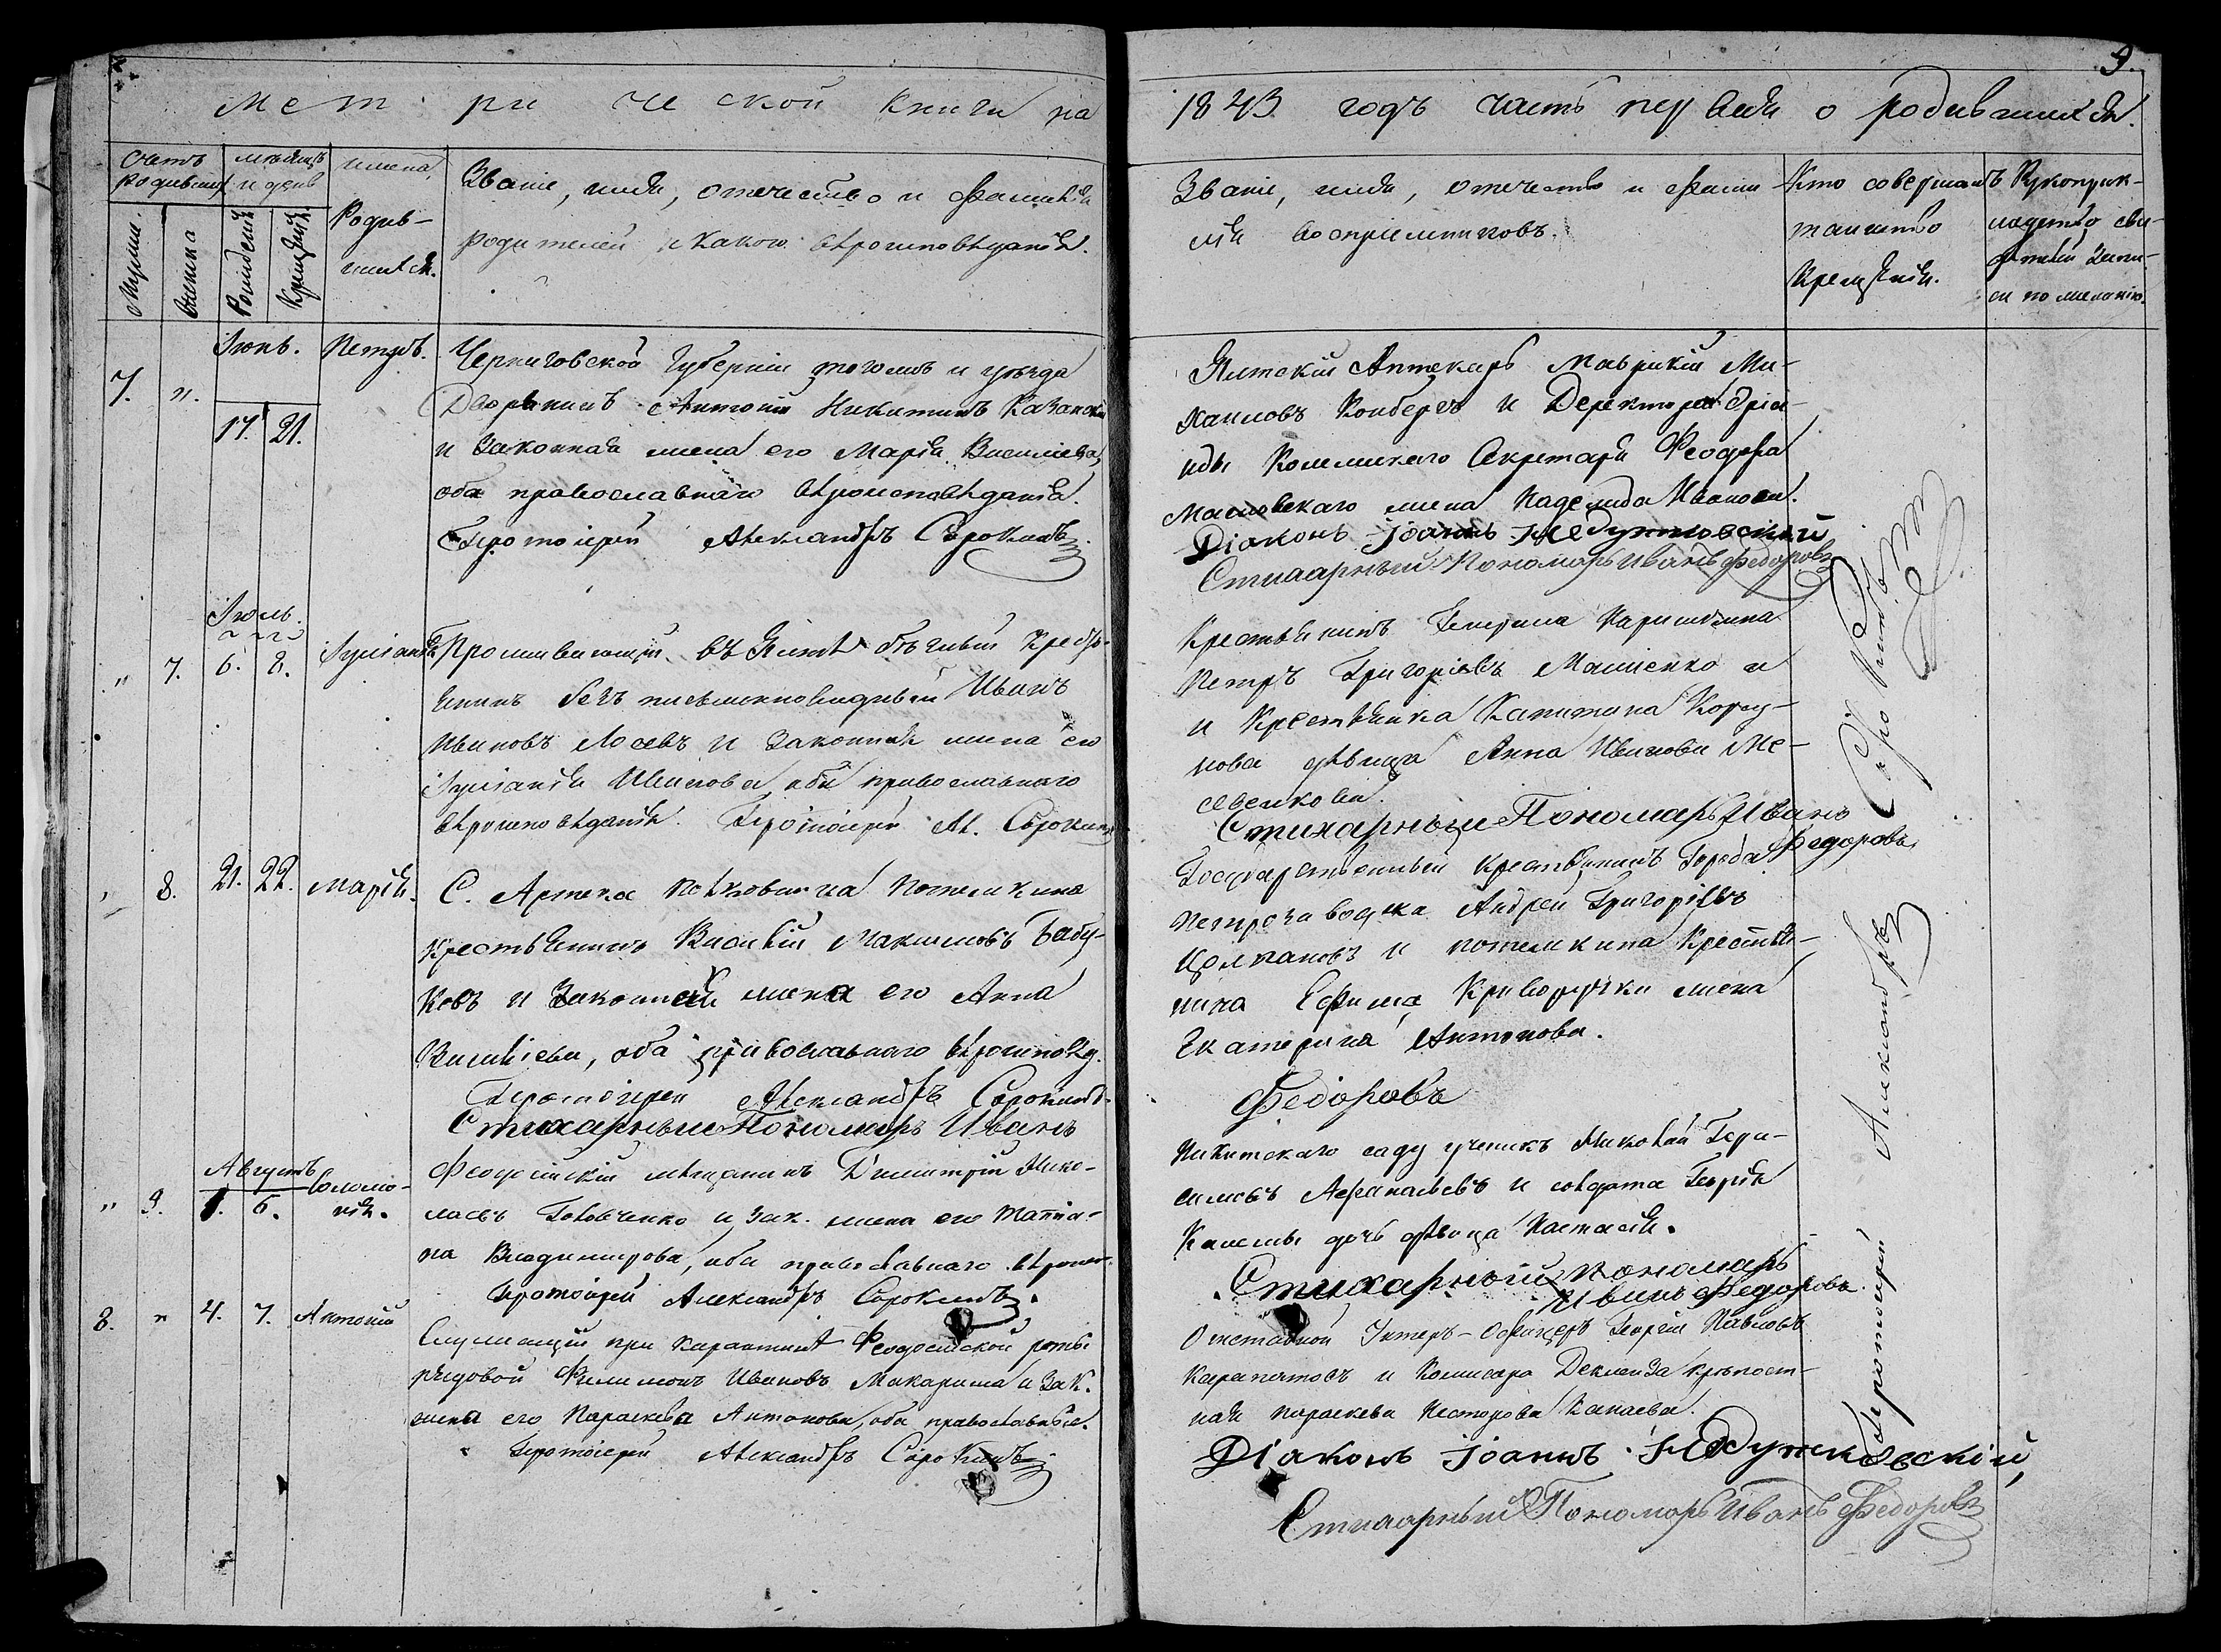 Метрической книги на
1843 годъ часть первая о родившихся.
9.
Счетъ родившихся
мѣсяцъ и день
имена родив-
шихся.
Мужеска
Женска
Рожденія
Крещенія
Званіе, имя, отечество и фамилія
родителей и какого вѣроисповѣданія.
Званіе, имя, отечество и фами-
лія воспріемниковъ.
Кто совершалъ
таинство
крещенія.
Рукоприк-
ладство сви-
дѣтелей записи
по желанію.
7. „
Іюнь.
17. 21.
Петръ.
Черниговской Губерніи тогожъ и уѣзда
Дворянинъ Антоній Никитинъ
и законная жена его Марія Васильева,
оба православнаго вѣроисповѣданія.
Протоіерей Александръ Сорокинъ
Ялтскій Аптекарь Маврикій Ми-
хаиловъ и
Коллежскаго Секретаря Феодора
Масловскаго жена Надежда Иванова.
Діаконъ Іоаннъ
Стихарный Пономарь Иванъ Федоровъ
„ 7.
Іюль.
6. 8.
Іуліанія
Проживающій въ Ялтѣ бѣглый кресть-
янинъ безъ письменнаго вида Иванъ
Ивановъ Лосевъ и законная жена его
Іуліанія Иванова, оба православнаго
вѣроисповѣданія. Протоіерей Ал. Сорокинъ
Крестьянинъ Генерала Нарышкина
Петръ Григорьевъ и
и Крестьянка Капитана
нова дѣвица Анна Иванова
Стихарный Пономарь Иванъ
Федоровъ
„ 8. 21. 22. Марія.
С. Артека Полковника Потемкина
крестьянинъ Василій Максимовъ Бабу-
ковъ и законная жена его Анна
Васильева, оба православнаго вѣроисповѣд.
Протоіерей Александръ Сорокинъ
Стихарный Пономарь Иванъ
Государственный крестьянинъ Города
Петрозаводска Андрей Григорьевъ
и Потемкина крестья-
нина Ефима Криворучки жена
Екатерина Антонова.
Федоровъ
„ 9.
Августъ
1. 6.
Соломо-
нія.
Феодосійскій мѣщанинъ Димитрій Нико-
лаевъ Головченко и зак. жена его Татіа-
на Владимирова, оба православнаго вѣроисп.
Протоіерей Александръ Сорокинъ
Никитскаго саду ученикъ Николай Гера-
симовъ Афанасьевъ и солдата Георгія
дочь дѣвица Настасія.
Стихарный пономарь
Иванъ Федоровъ
8. „ 4. 7. Антоній
Служащій при карантинѣ Феодосійской роты
рядовой Филимонъ Ивановъ и зак.
жена его Параскева Антонова, оба православные.
Протоіерей Александръ Сорокинъ
Отставной Унтеръ-Офицеръ Георгій Павловъ
и Комисара крѣпост-
ная Параскева Несторова Канаева.
Діаконъ Іоаннъ
Стихарный Пономарь Иванъ Федоровъ
Протоіерей Александръ Сорокинъ